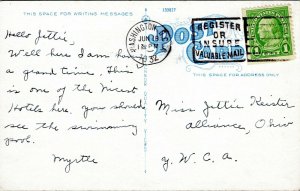 THIS SPACE FOR WRITING MESSAGES
THIS SPACE FOR ADDRESS ONLY
WASHINGTON
JUN 19
1932
REGISTER
OR
INSURE
VALUABLE MAIL
POST
1
1
CENT
Hello Jettie
Well here I am having
a grand time. This
is one of the nicest
Hotels here, you should
see the swimming
pool.
Myrtle
Miss Jettie Keister
Alliance, Ohio
Y. W. C. A.